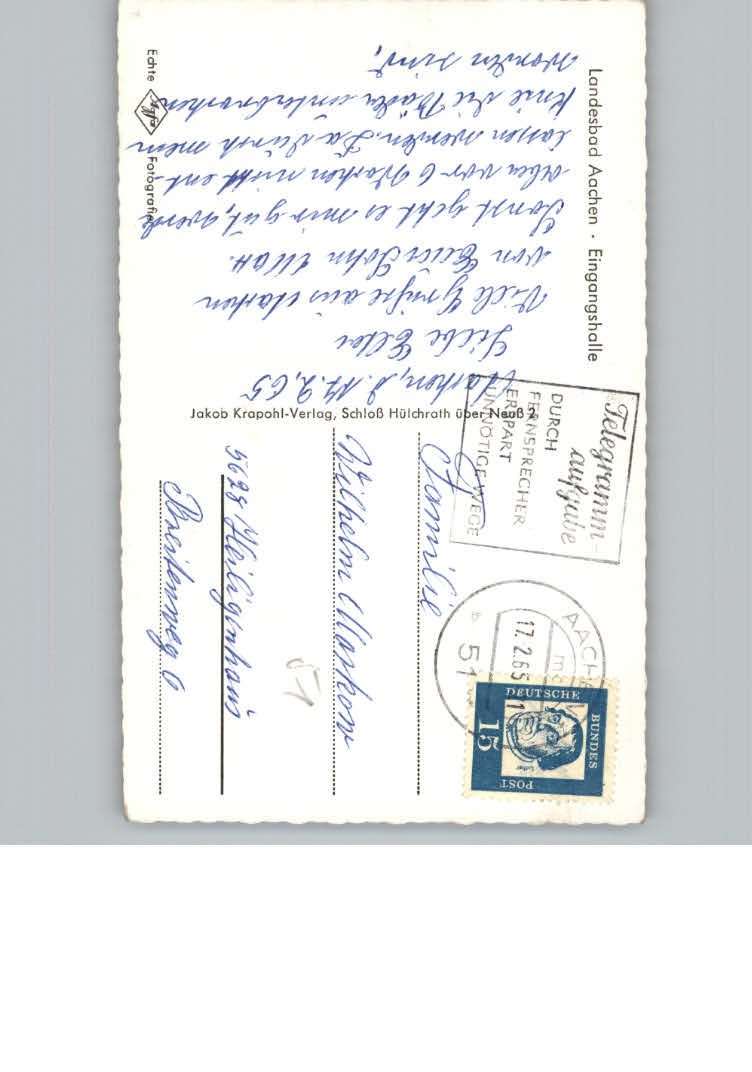 Landesbad Aachen · Eingangshalle
Aachen, d. 17.2.65
Liebe Eltern
Viele Grüße aus Aachen
von Euer Sohn
Sonst geht es mir gut, werde
aber vor 6 Wochen nicht ent-
lassen werden. Da durch mein
Knie die Bäder unterbrochen
worden sind.
Echte Agfa Fotografie
Jakob Krapohl-Verlag, Schloß Hülchrath über Neuß 2
Telegramm-
aufgabe
DURCH
FERNSPRECHER
ERSPART
UNNÖTIGE WEGE
AACHEN
17.2.65
51
DEUTSCHE
BUNDES
POST
15
Luther
Familie
Wilhelm Markow
5628 Heiligenhaus
Breitenweg 6
51